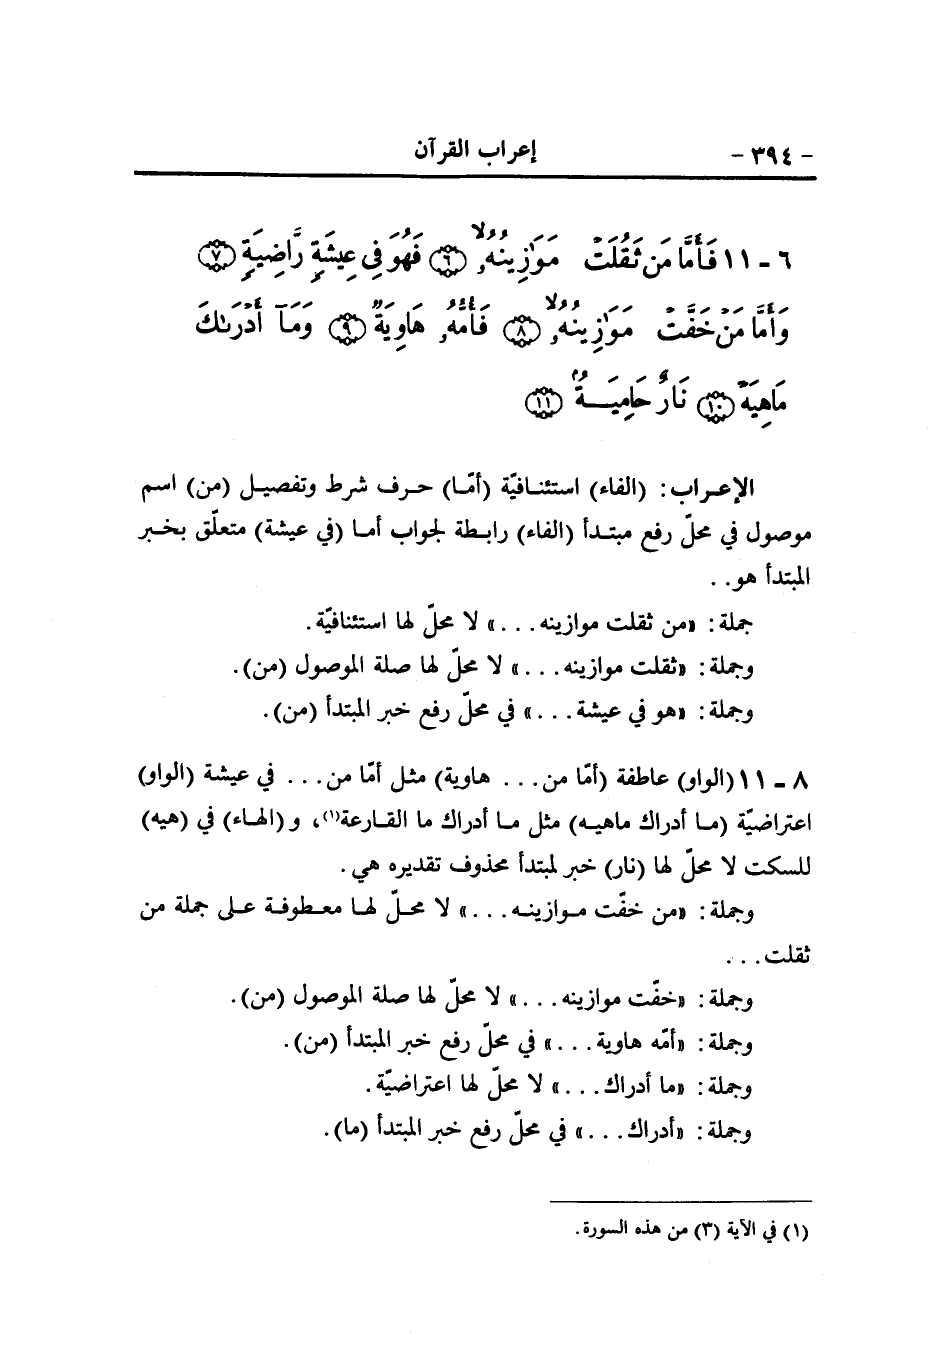 - ٣٩٤ - إعراب القرآن
٦ - ١١ فَأَمَّا مَن ثَقُلَتْ مَوَٰزِينُهُۥ ﴿٦﴾ فَهُوَ فِى عِيشَةٍ رَّاضِيَةٍ ﴿٧﴾
وَأَمَّا مَنْ خَفَّتْ مَوَٰزِينُهُۥ ﴿٨﴾ فَأُمُّهُۥ هَاوِيَةٌ ﴿٩﴾ وَمَآ أَدْرَىٰكَ
مَاهِيَهْ ﴿١٠﴾ نَارٌ حَامِيَةٌ ﴿١١﴾
الإعراب: (الفاء) استئنافيّة (أمّا) حرف شرط وتفصيل (من) اسم
موصول في محلّ رفع مبتدأ (الفاء) رابطة لجواب أما (في عيشة) متعلّق بخبر
المبتدأ هو..
جملة: «من ثقلت موازينه...» لا محلّ لها استئنافيّة.
وجملة: «ثقلت موازينه...» لا محلّ لها صلة الموصول (من).
وجملة: «هو في عيشة...» في محلّ رفع خبر المبتدأ (من).
٨ - ١١ (الواو) عاطفة (أمّا من... هاوية) مثل أمّا من... في عيشة (الواو)
اعتراضيّة (ما أدراك ماهيه) مثل ما أدراك ما القارعة(١)، و(الهاء) في (هيه)
للسكت لا محلّ لها (نار) خبر لمبتدأ محذوف تقديره هي.
وجملة: «من خفّت موازينه...» لا محلّ لها معطوفة على جملة من
ثقلت...
وجملة: «خفّت موازينه...» لا محلّ لها صلة الموصول (من).
وجملة: «أمّه هاوية...» في محلّ رفع خبر المبتدأ (من).
وجملة: «ما أدراك...» لا محلّ لها اعتراضيّة.
وجملة: «أدراك...» في محلّ رفع خبر المبتدأ (ما).
(١) في الآية (٣) من هذه السورة.